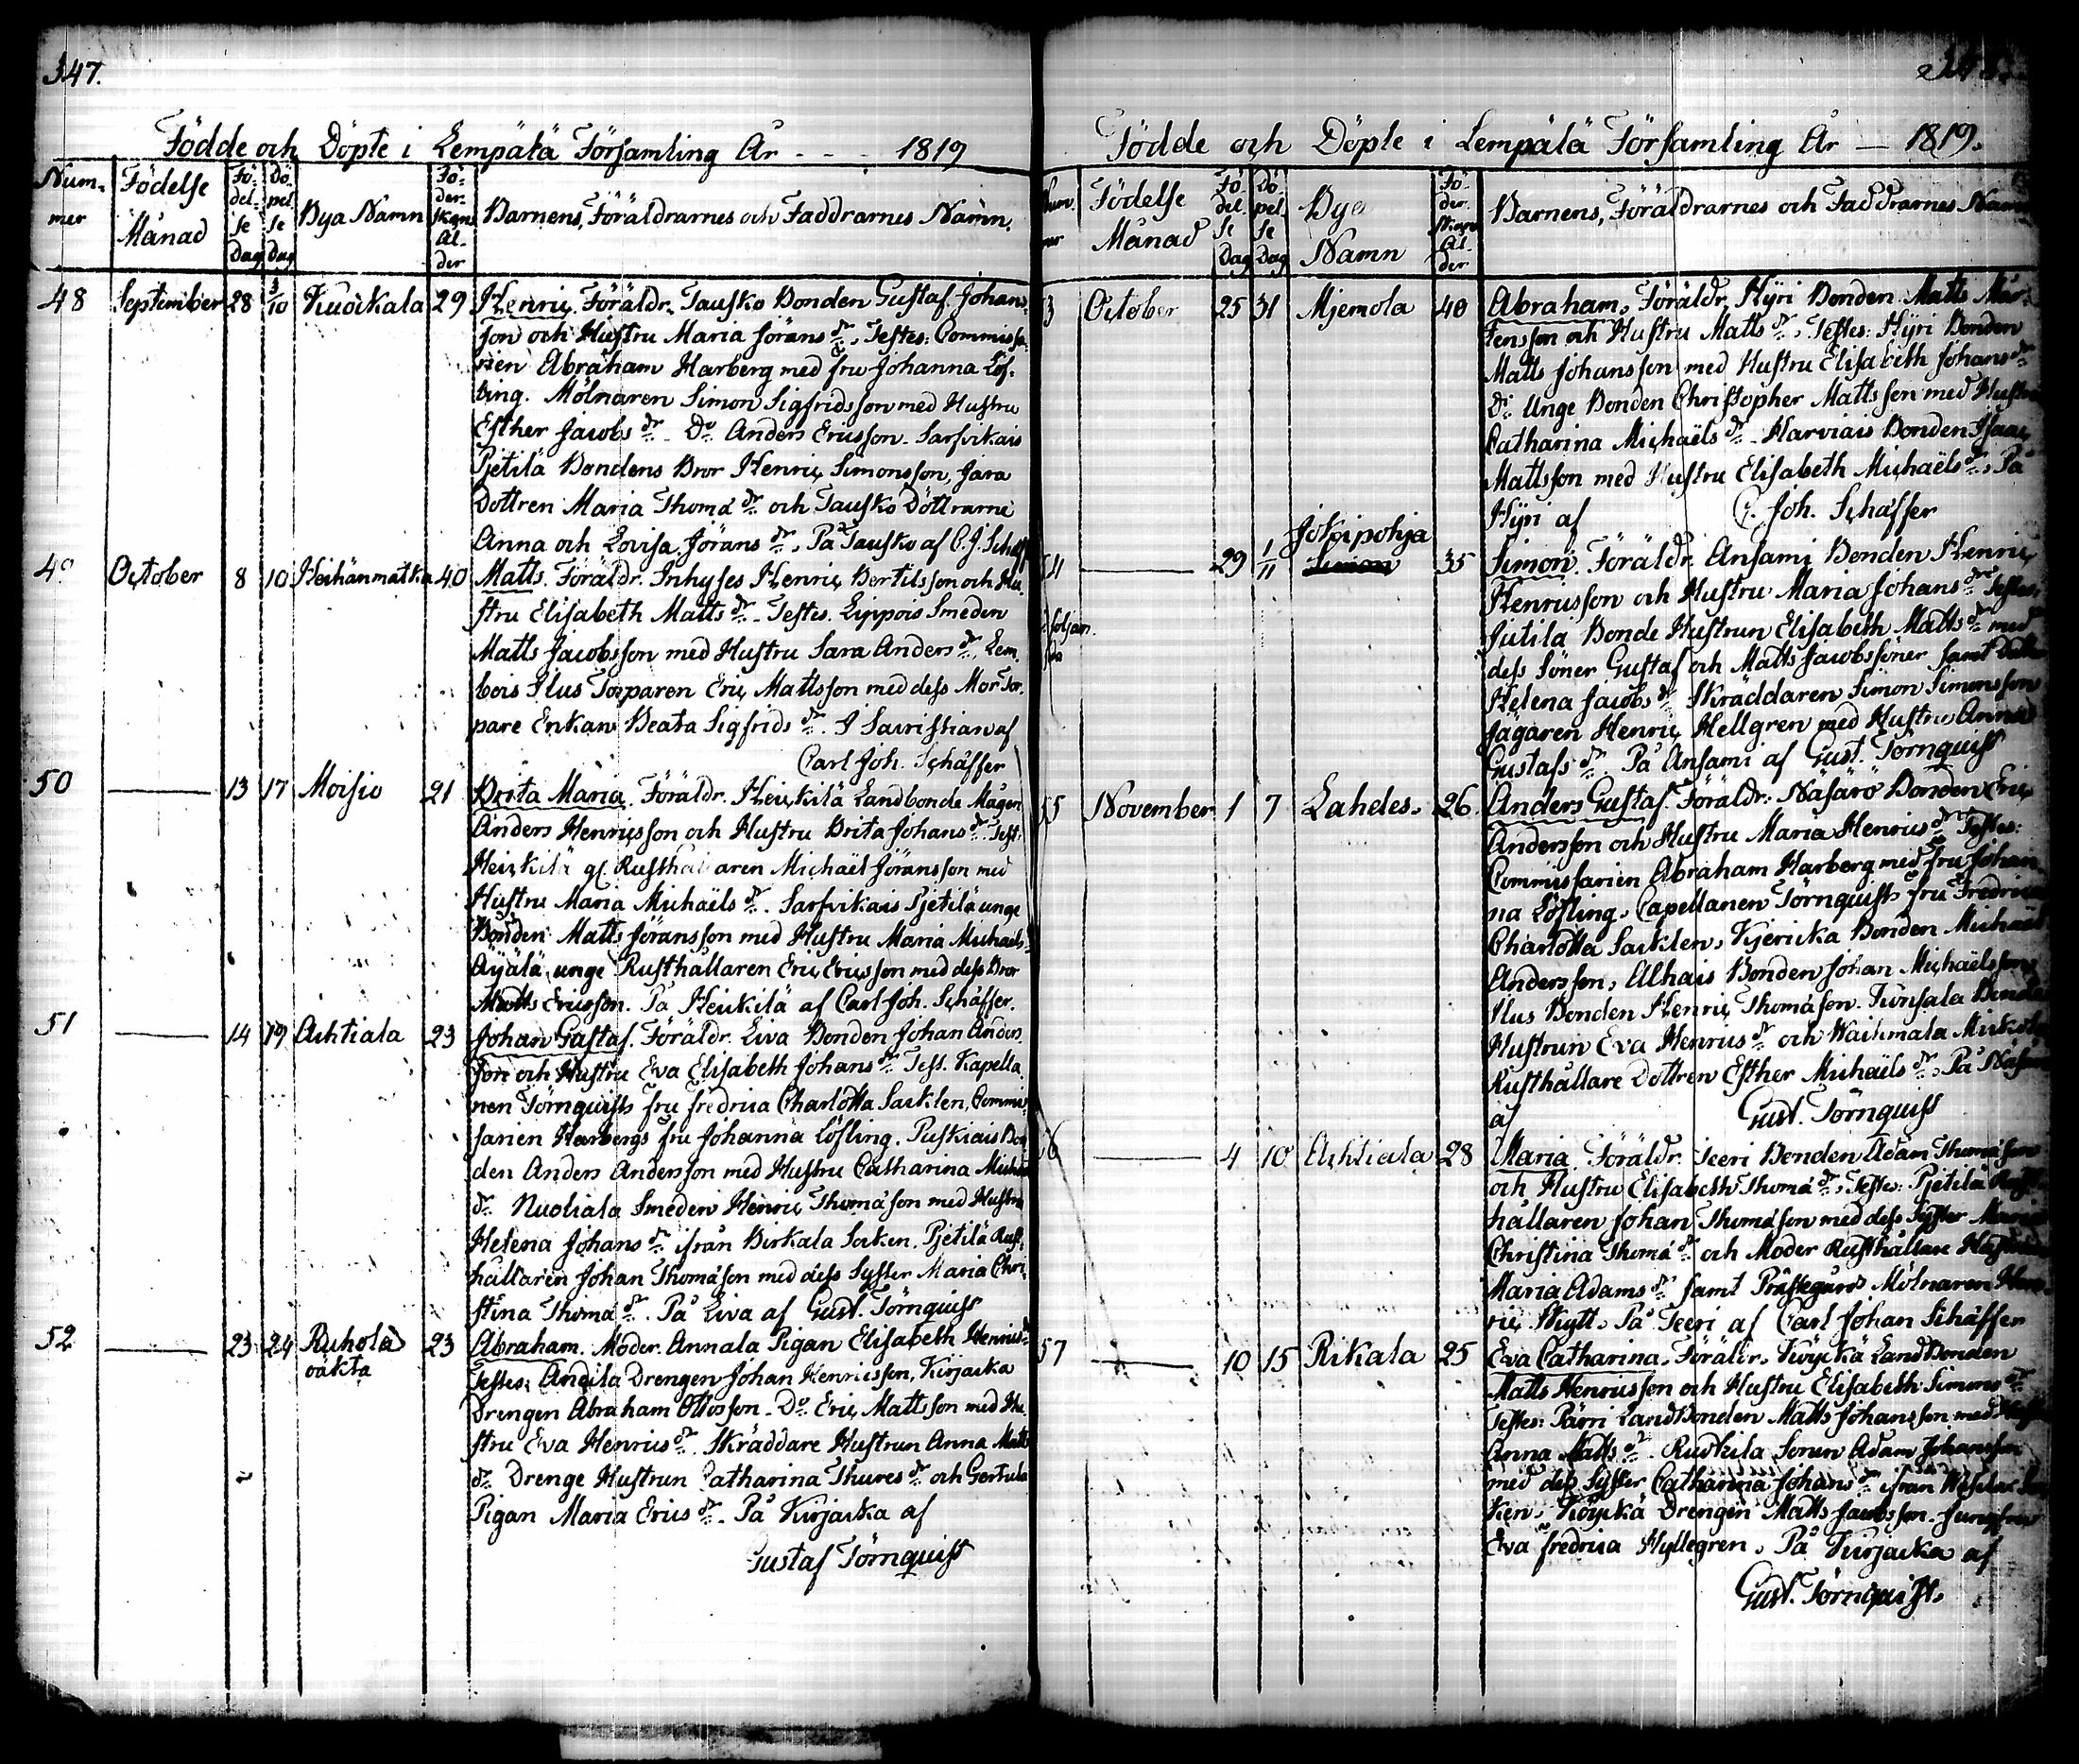 347.
Födde och Döpte i Lempälä Församling År - - - 1819
Nummer
Födelse Månad
Födelse Dag
Döpelse Dag
Bya Namn
Föderskans Ålder
Barnens, Föräldrarnes och Faddrarnes Namn.
48 September 28 3/10 Kuockala 29 Henric, Föräldr. Tausko Bonden Gustaf Johans-
son och Hustru Maria Jörans dr. Testes: Commissa-
rien Abraham Harberg med fru Johanna Löf-
ling. Mölnaren Simon Sigfridsson med Hustru
Esther Jacobs dr. Do Anders Ericsson. Sarfvikais
Pjetilä Bondens Bror Henric Simonsson, Jära
Dottren Maria Thoma dr. och Tausko Döttrarne
Anna och Lovisa Jörans dr. På Tausko af C. J. Schäff
49 October 8 10 Heihänmatka 40 Matts. Föräldr. Inhyses Henric Bertilsson och Hu-
stru Elisabeth Matts dr. Testes. Lippois Smeden
Matts Jacobsson med Hustru Sara Anders dr. Lem-
bois Ilus Torparen Eric Mattsson med dess Mor Tor-
pare Enkan Beata Sigfrids dr. I Sauristian af
Carl Joh. Schäffer
50 — 13 17 Moisio 21 Brita Maria. Föräldr. Heickilä Landbonde Mågen
Anders Henricsson och Hustru Brita Johans dr. Test:
Heickilä gl. Rusthållaren Michaël Jöransson med
Hustru Maria Michaëls dr. Sarfvikais Pjetilä unge
Bonden Matts Jöransson med Hustru Maria Michaëls
Äijälä unge Rusthållaren Eric Ericsson med dess Bror
Matts Ericsson. På Heickilä af Carl Joh. Schäffer.
51 — 14 19 Achtiala 23 Johan Gustaf. Föräldr. Liva Bonden Johan Anders
son och Hustru Eva Elisabeth Johans dr. Test. Kapella-
nen Törnquists fru Fredrica Charlotta Sacklen, Commis-
sarien Harbergs fru Johanna Löfling. Puskiais Bon
den Anders Andersson med Hustru Catharina Michaë
dr. Nuoliala Smeden Henric Thomasson med Hustru
Helena Johans dr. ifrån Birkala Socken. Pjetilä Rust-
hållaren Johan Thomasson med dess Syster Maria Chri-
stina Thoma dr. På Liva af Gust. Törnquist
52 — 23 24 Ruhola oäkta 23 Abraham. Moder. Annala Pigan Elisabeth Henrics dr.
Testes: Anđila Drengen Johan Henricsson, Kurjacka
Drengen Abraham Ottosson. Do. Eric Mattsson med Hu
stru Eva Henrics dr. Skräddare Hustrun Anna Matts
dr. Drenge Hustrun Catharina Thures dr. och Gertula
Pigan Maria Erics dr. På Kurjacka af
Gustaf Törnquist
348.
Födde och Döpte i Lempälä Församling År — 1819.
Födelse Månad
Födelse Dag
Döpelse Dag
Bya Namn
Föderskans Ålder
Barnens, Föräldrarnes och Faddrarnes Namn
3 October 25 31 Mjemola 40 Abraham, Föräldr. Hyri Bonden Matts Mår-
tensson och Hustru Matts dr. Testes: Hyri Bonden
Matts Johansson med Hustru Elisabeth Johans dr.
Do. Unge Bonden Christopher Mattsson med Hustru
Catharina Michaëls dr. Harviais Bonden Isaac
Mattsson med Hustru Elisabeth Michaëls dr. På
Hyri af C. Joh. Schäffer
54 — 29 1/11 Jokipohja 35 Simon. Föräldr. Ansami Bonden Henric
Henricsson och Hustru Maria Johans dr. Testes.
Jutila Bonde Hustrun Elisabeth Matts dr. med
dess Söner Gustaf och Matts Jacobssöner samt
Helena Jacobs dr. Skräddaren Simon Simonsson
Jägaren Henric Hellgren med Hustru Anna
Gustafs dr. På Ansami af Gust. Törnquist
55 November 1 7 Lahdes. 26. Anders Gustaf. Föräldr. Näsärö Bonden Eric
Andersson och Hustru Maria Henrics dr. Testes:
Commissarien Abraham Harberg med fru Johan
na Löfling, Capellanen Törnquists fru Fredrica
Charlotta Sacklen, Kjericka Bonden Michaël
Andersson, Alhais Bonden Johan Michaëlsson
Ilus Bonden Henric Thomasson. Turisala Bonde
Hustrun Eva Henrics dr. och Wachmala
Rusthållare Dottren Esther Michaëls dr. På
af Gust. Törnquist
56 — 4 10 Achtiala 28 Maria. Föräldr. Teeri Bonden Adam Thomasson
och Hustru Elisabeth Thoma dr. Testes: Pjetilä Rust
hållaren Johan Thomasson med dess Syster Maria
Christina Thoma dr. och Moder Rusthållare Hustrun
Maria Adams dr. samt Prästegårds Mölnaren Hen-
ric Skytt. På Teeri af Carl Johan Schäffer
57 — 10 15 Rikala 25 Eva Catharina. Föräldr. Köyckä Landbonden
Matts Henricsson och Hustru Elisabeth Simons dr.
Testes: Pärri Landbonden Matts Johansson med
Anna Matts dr. Sonen Adam Johansson
med dess Syster Catharina Johans dr. ifrån
ken. Köyckä Drengen Matts Jacobsson. Jungfru
Eva Fredrica Hyllegren. På Kurjacka af
Gust. Törnquist.